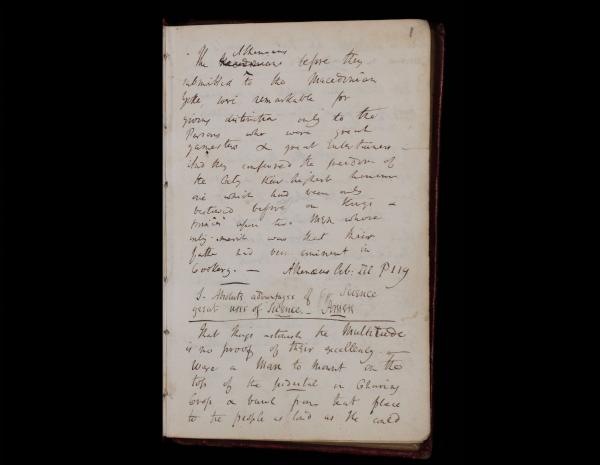 1
Athenians
The Macedonians before they
submitted to the Macedonian
Yoke, were remarkable for
giving distinction only to the
Persons who were great
gamesters & great Entertainers –
And they conferred the freedom of
the City their highest honour
one which had been only
bestowed before on Kings –
upon two Men whose
only merit was that their
father had been eminent in
Cookery. — Athenaeus Lib: III P 119
Absolute advantages of Science
great uses of Science. – Power
That things astonish the Multitude
is no proof of their excellency –
Were a Man to Mount on the
top of the pedestal in Charing
Cross & bawl from that place
to the people as loud as He could